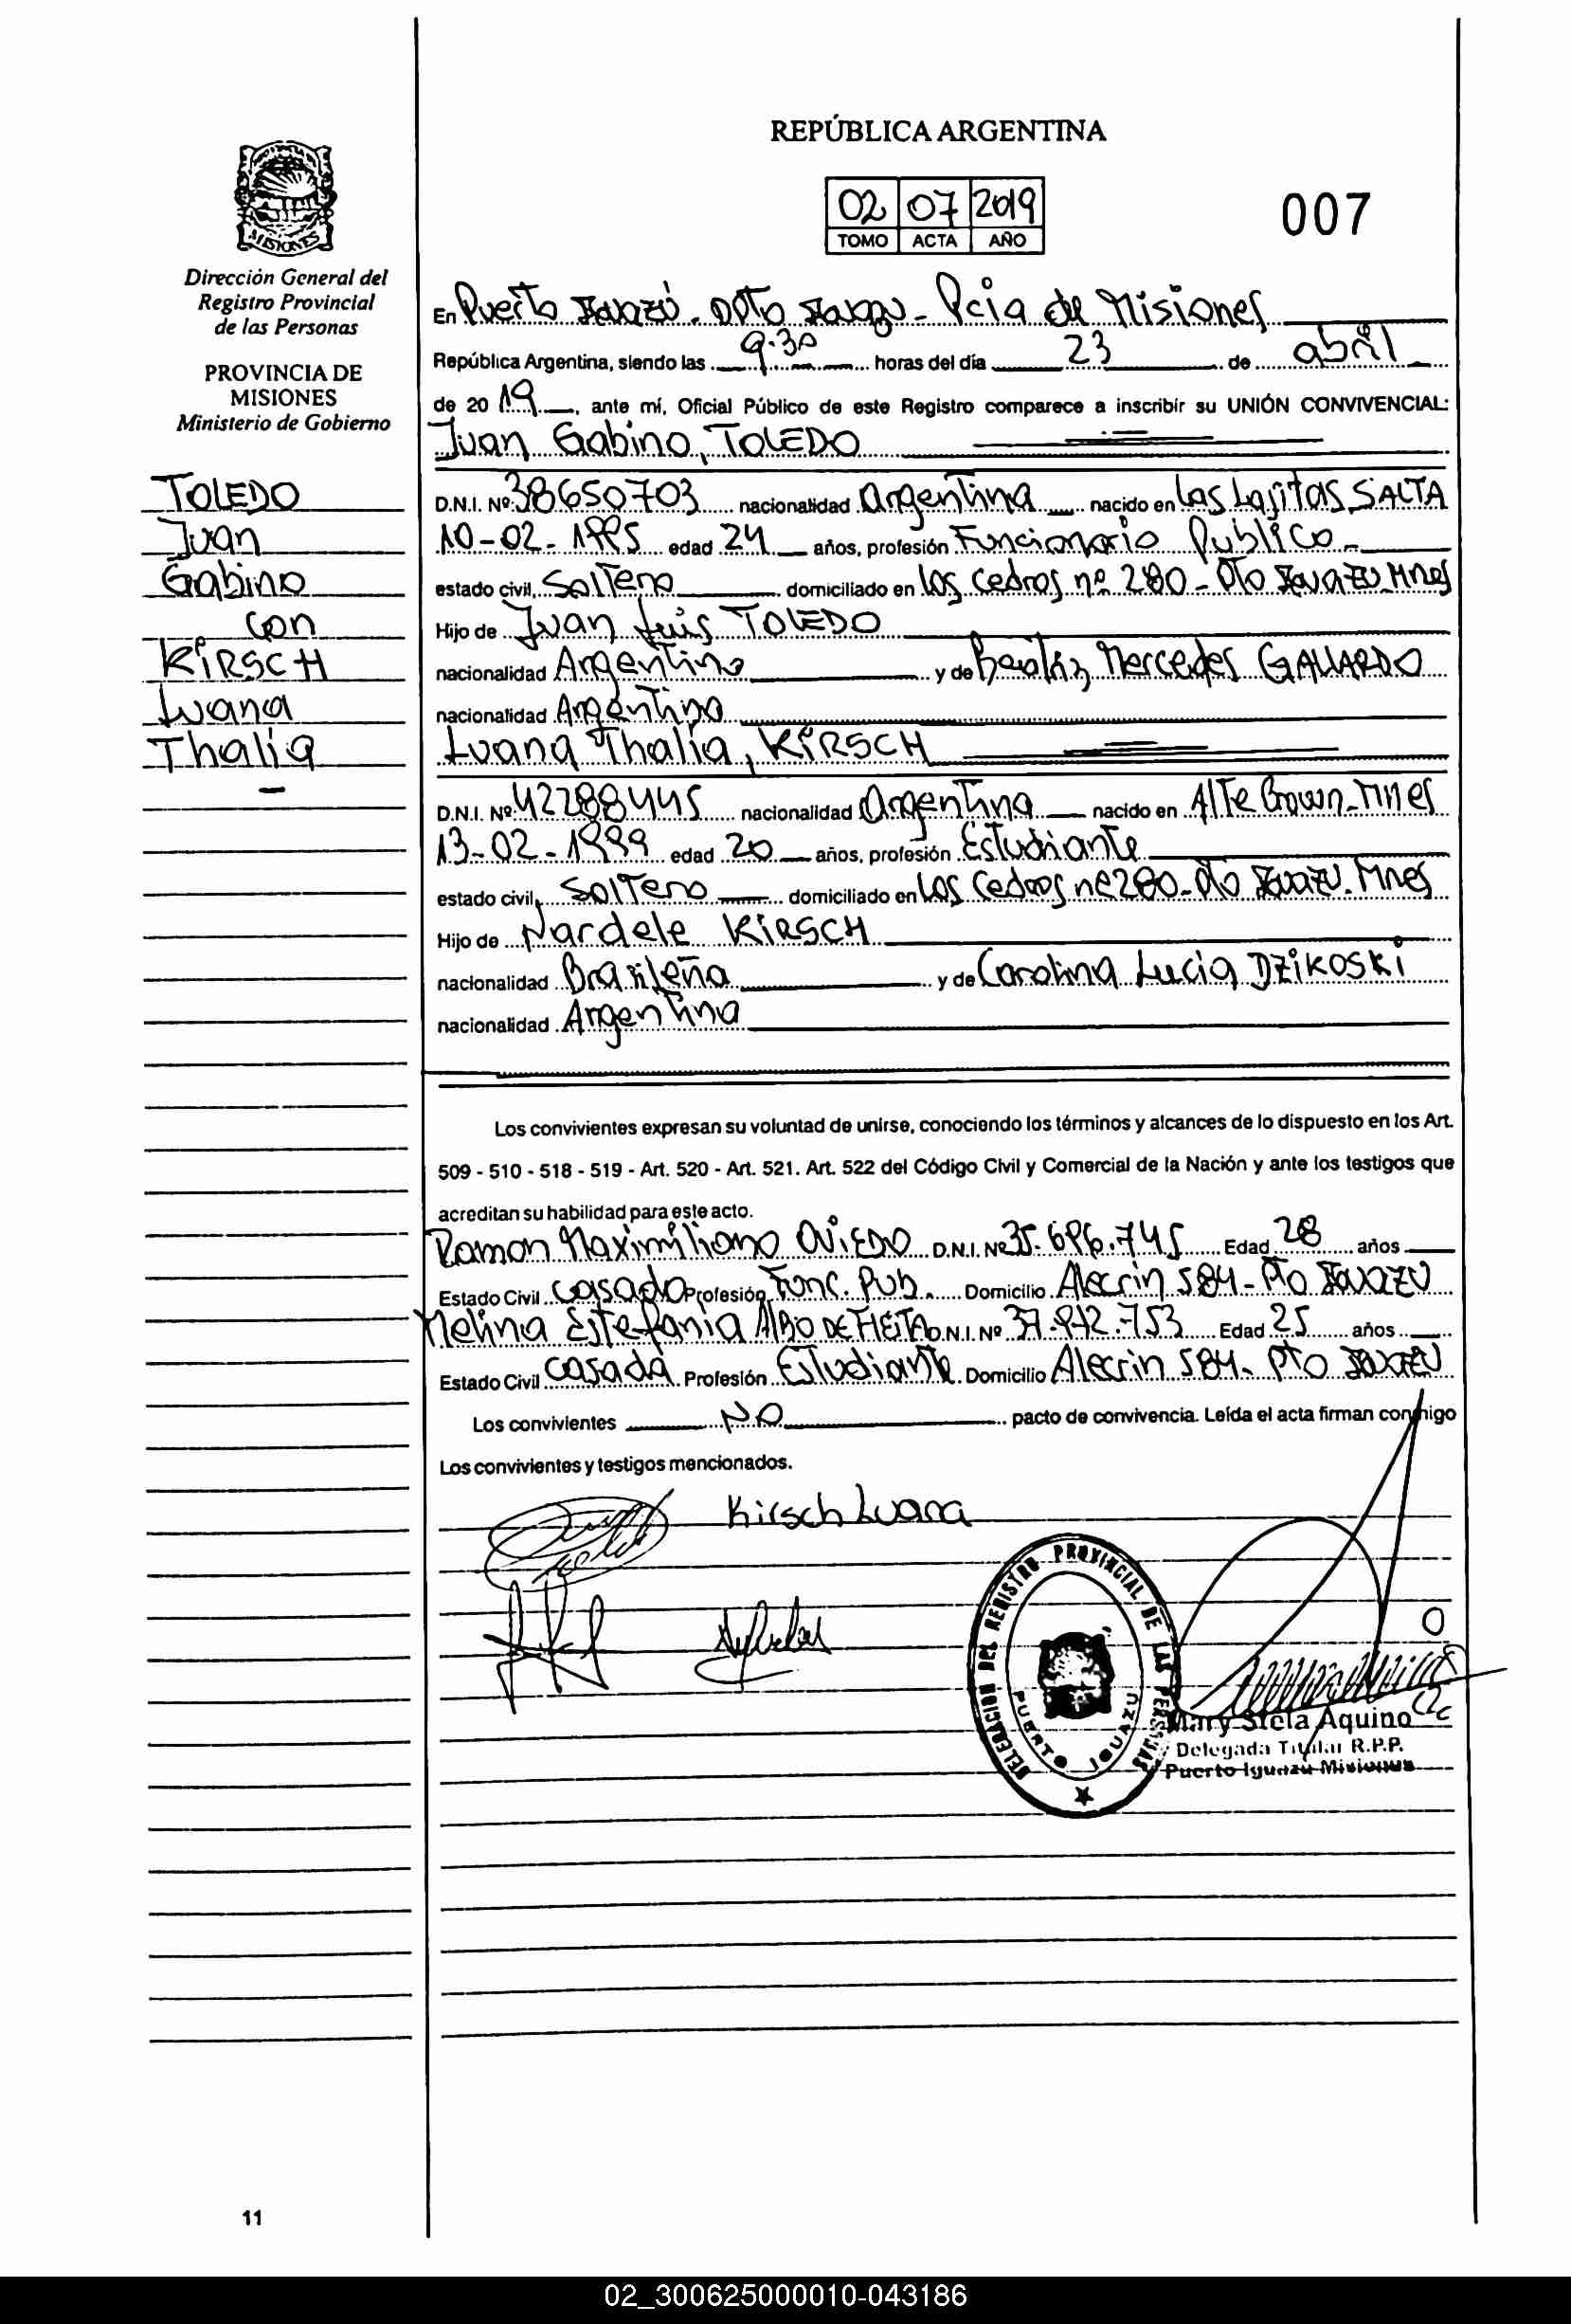 REPÚBLICA ARGENTINA
02 07 2019
TOMO ACTA AÑO
007
MISIONES
Dirección General del
Registro Provincial
de las Personas
PROVINCIA DE
MISIONES
Ministerio de Gobierno
TOLEDO
Juan
Gabino
con
KIRSCH
Luana
Thalia
En Puerto Iguazú - Dpto Iguazu - Pcia de Misiones
República Argentina, siendo las 9:30 horas del día 23 de abril
de 2019, ante mí, Oficial Público de este Registro comparece a inscribir su UNIÓN CONVIVENCIAL:
Juan Gabino, TOLEDO
D.N.I. Nº: 38650703 nacionalidad Argentina nacido en Las Lajitas, SALTA
10-02-1995 edad 24 años, profesión Funcionario Publico -
estado civil, Soltero domiciliado en Los Cedros nº 280 - Pto Iguazu Mnes
Hijo de Juan Luis TOLEDO
nacionalidad Argentino y de Beatriz Mercedes GALLARDO
nacionalidad Argentina
Luana Thalia, KIRSCH
D.N.I. Nº: 42288445 nacionalidad Argentina nacido en Alte Brown - Mnes
13-02-1999 edad 20 años, profesión Estudiante
estado civil, Soltero domiciliado en Los Cedros nº 280 - Pto Iguazu - Mnes
Hijo de Nardele KIRSCH
nacionalidad Brasileña y de Carolina Lucia DZIKOSKI
nacionalidad Argentina
Los convivientes expresan su voluntad de unirse, conociendo los términos y alcances de lo dispuesto en los Art.
509 - 510 - 518 - 519 - Art. 520 - Art. 521. Art. 522 del Código Civil y Comercial de la Nación y ante los testigos que
acreditan su habilidad para este acto.
Ramon Maximiliano OVIEDO D.N.I. Nº 35.696.745 Edad 28 años
Estado Civil Casado Profesión Func. Pub. Domicilio Alecrin 584 - Pto Iguazu
Melina Estefania D.N.I. Nº 37.972.753 Edad 25 años
Estado Civil Casada Profesión Estudiante Domicilio Alecrin 584 - Pto Iguazu
Los convivientes NO pacto de convivencia. Leída el acta firman conmigo
Los convivientes y testigos mencionados.
Kirsch Luana
DELEGACION DEL REGISTRO PROVINCIAL DE LAS PERSONAS
PUERTO IGUAZU
Mary Stela Aquino
Delegada Titular R.P.P.
Puerto Iguazu Misiones
11
02_300625000010-043186